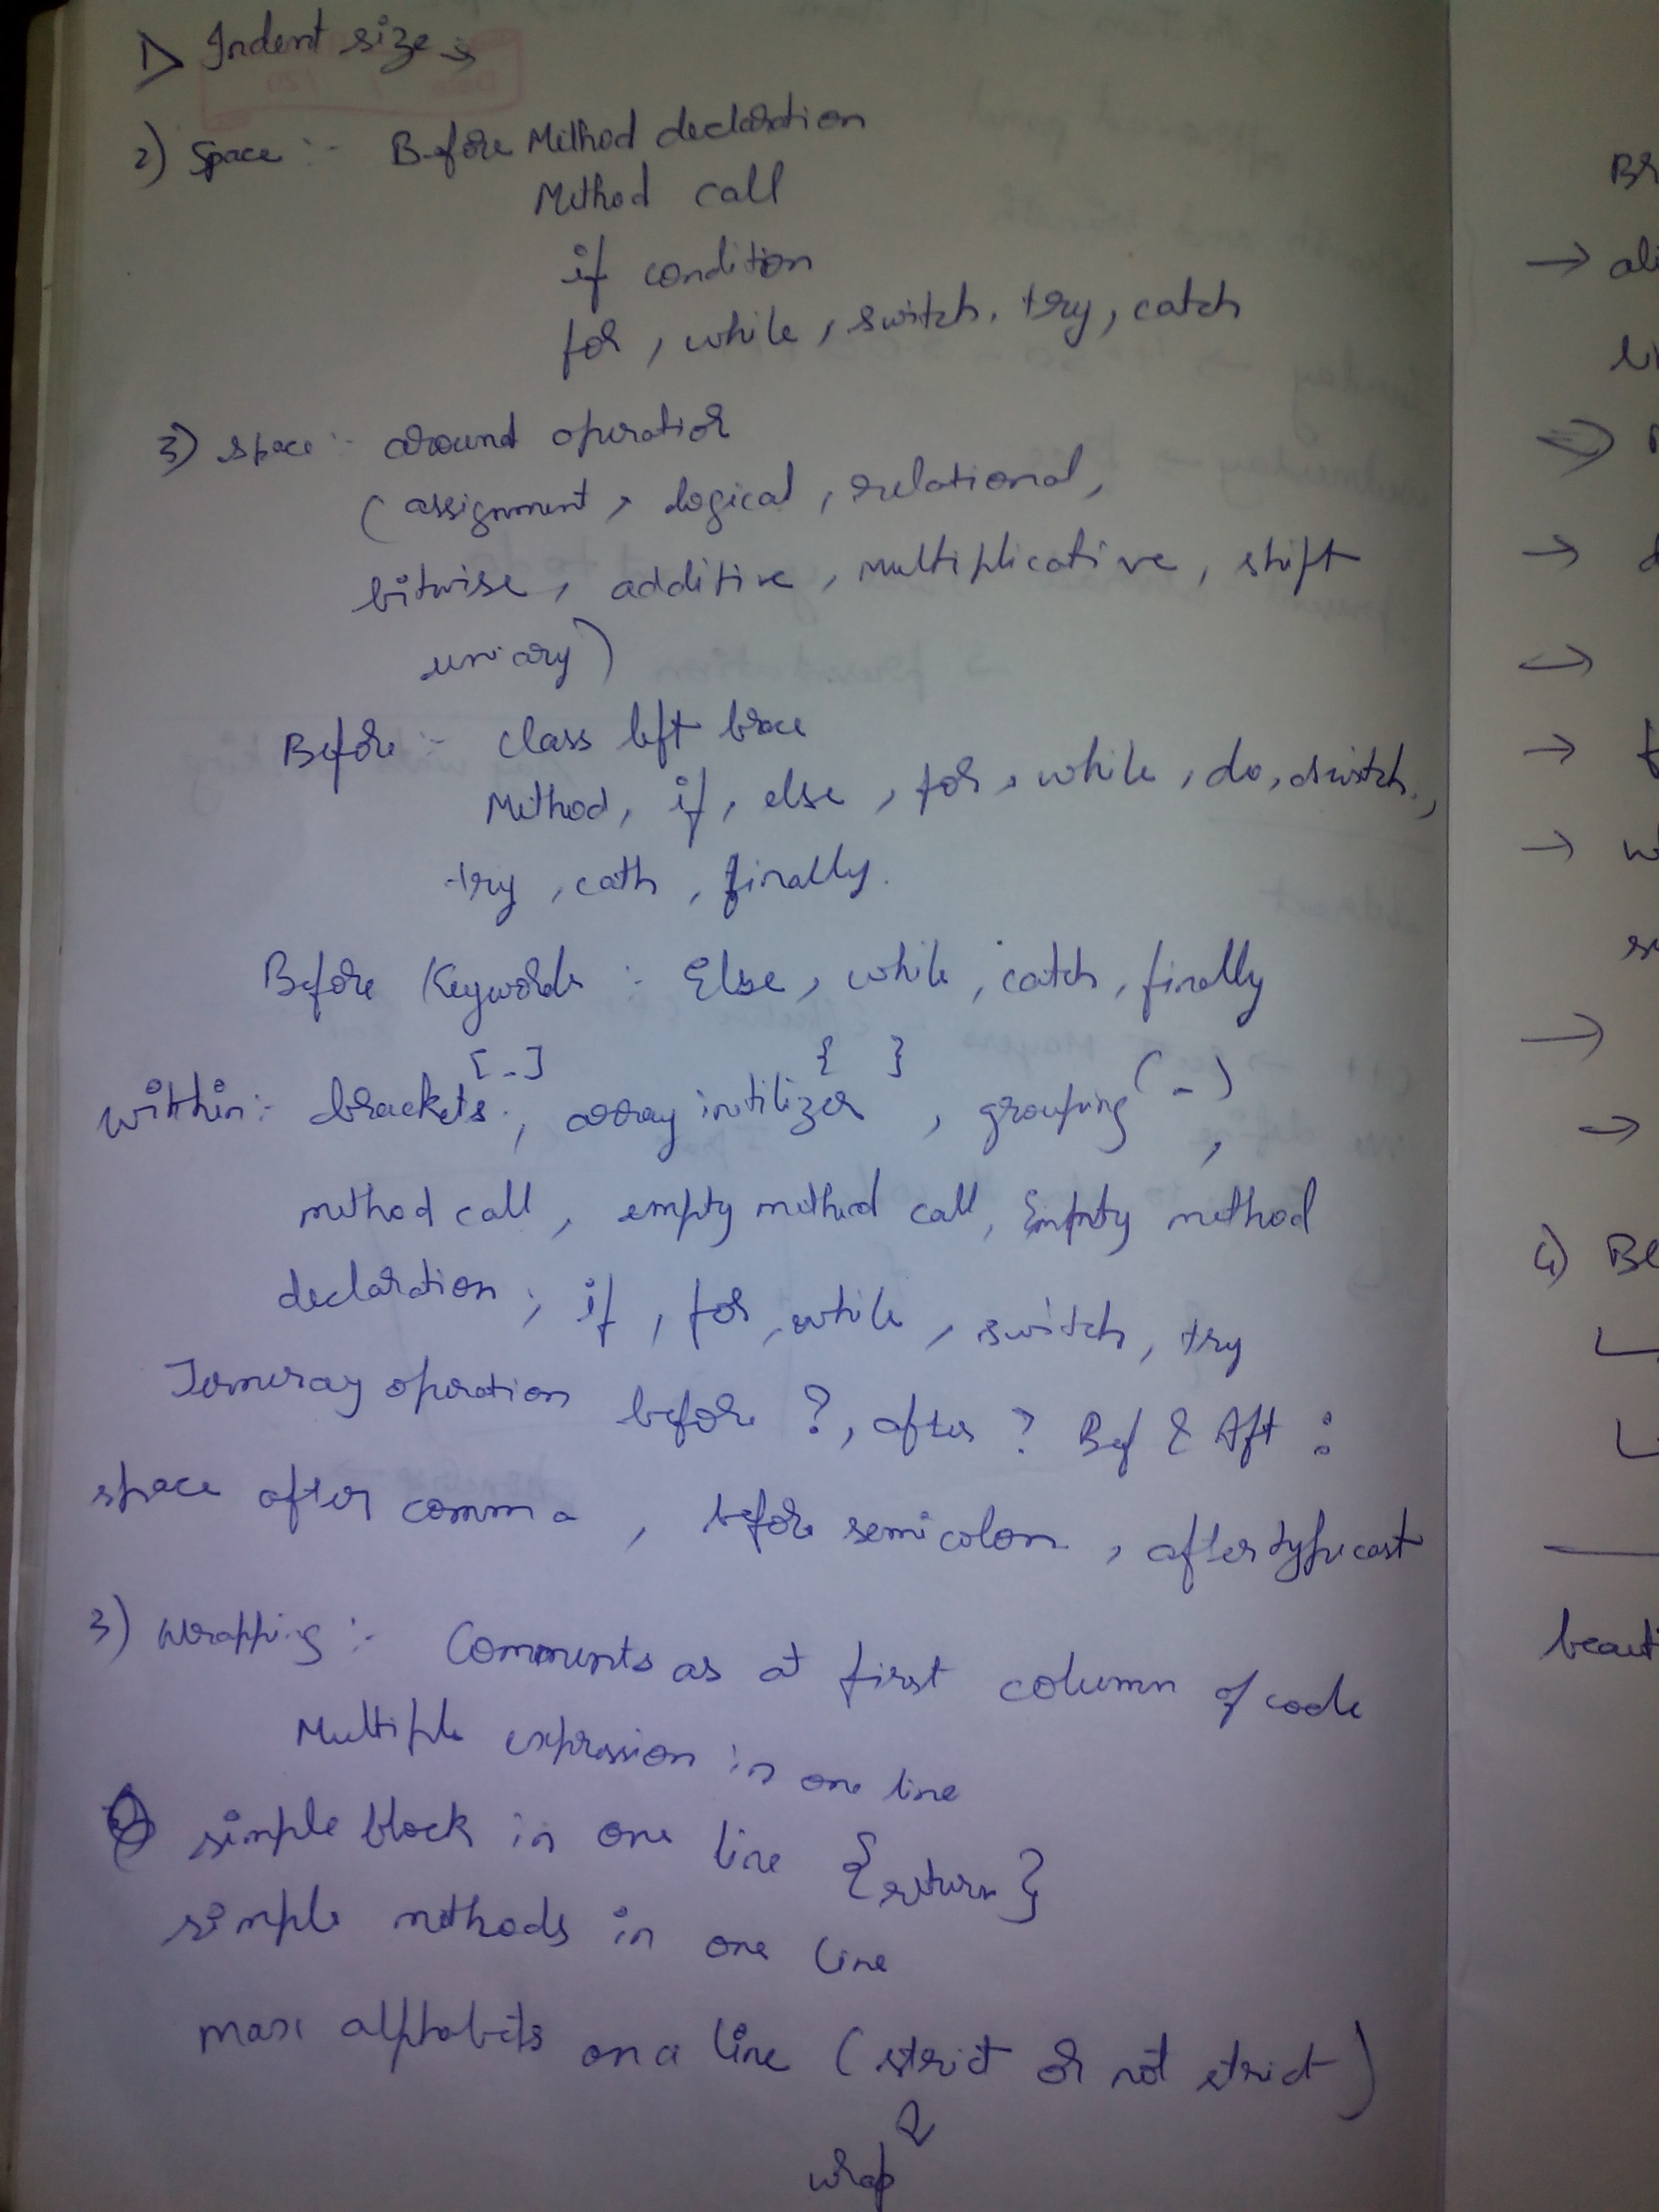 1) Indent size →
2) Space :- Before Method declaration
Method call
if condition
for, while, switch, try, catch
3) space :- around operatior
(assignment, logical, relational,
bitwise, additive, multiplicative, shift
unary)
Before :- class left brace
Method, if, else, for, while, do, switch,
try, cath, finally.
Before Keywords : Else, while, catch, finally
[ - ] { } ( - )
within :- brackets, array initilizer, grouping,
method call, empty method call, Empty method
declaration, if, for, while, switch, try
Terneray operation before ?, after ? Bef & Aft :
space after comma, before semicolon, after typecast
3) Wrapping :- Comments as at first column of code
Multiple expression in one line
simple block in one line {return}
simple methods in one line
max alphabets on a line (strict or not strict)
wrap
Br
→ ali
li
→
→
→
→
→ w
→
→
4) Be
beauti